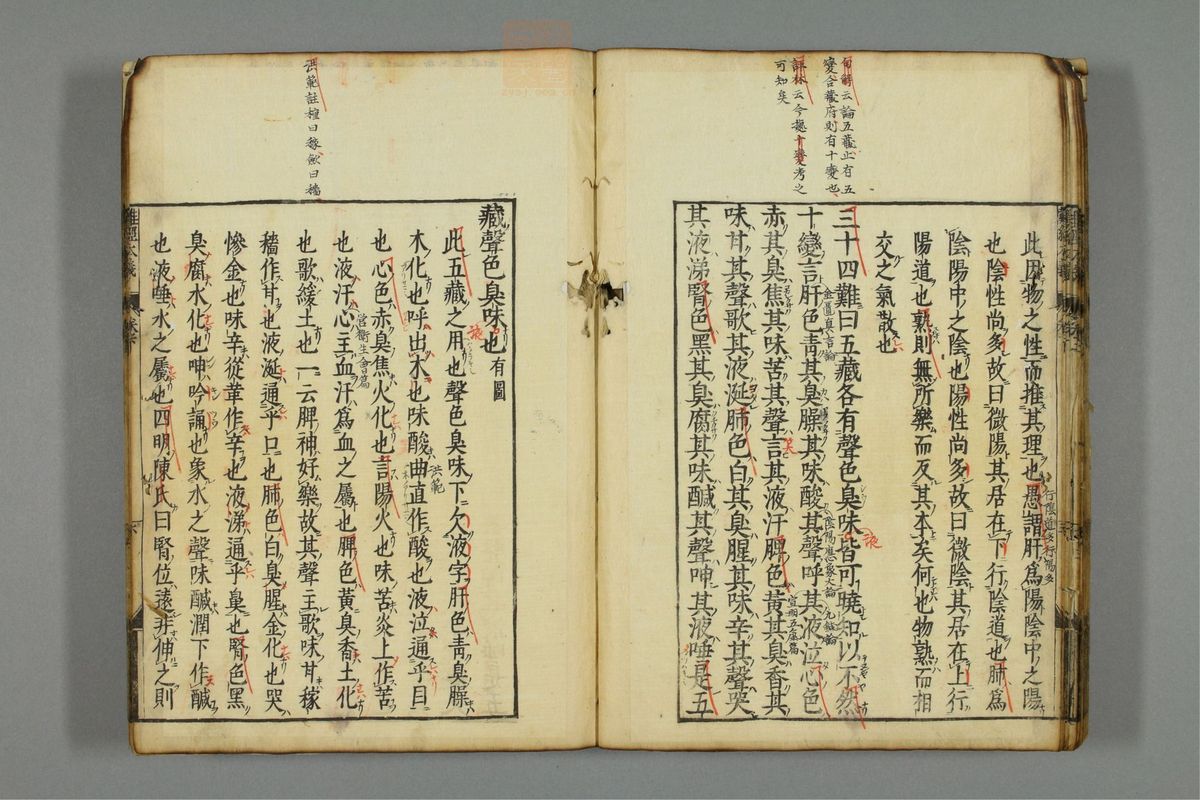 句解云論五藏止有五
變合藏府則有十變也
評林云今擬十變考之
可知矣
此因物之性而推其理也愚謂肝爲陽陰中之陽
也陰性尚多故曰微陽其居在下行陰道也肺爲
陰陽中之陰也陽性尚多故曰微陰其居在上行
陽道也熟則無所樂而反其本矣何也物熟而相
交之氣散也
三十四難曰五藏各有聲色臭味皆可曉知以不然
十變言肝色青其臭臊其味酸其聲呼其液泣心色
赤其臭焦其味苦其聲言其液汗脾色黃其臭香其
味甘其聲歌其液涎肺色白其臭腥其味辛其聲哭
其液涕腎色黑其臭腐其味鹹其聲呻其液唾是五
洪範註
藏聲色臭味也有圖
此五藏之用也聲色臭味下欠液字肝色青臭臊
木化也呼出木也味酸曲直作酸也液泣通乎目
也心色赤臭焦火化也言陽火也味苦炎上作苦
也液汗心主血汗爲血之屬也脾色黃臭香土化
也歌緩土也一云脾神好樂故其聲主歌味甘稼
穡作甘也液涎通乎口也肺色白臭腥金化也哭
慘金也味辛從革作辛也液涕通乎鼻也腎色黑
臭腐水化也呻吟誦也象水之聲味鹹潤下作鹹
也液唾水之屬也四明陳氏曰腎位遠非伸之則